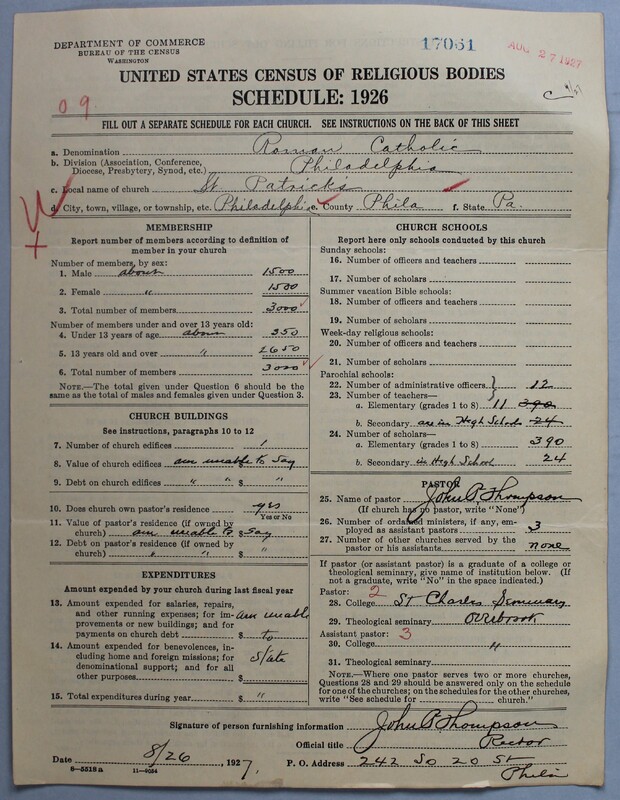 DEPARTMENT OF COMMERCE
BUREAU OF THE CENSUS
WASHINGTON
17061
AUG 27 1927
UNITED STATES CENSUS OF RELIGIOUS BODIES
SCHEDULE: 1926
09
FILL OUT A SEPARATE SCHEDULE FOR EACH CHURCH. SEE INSTRUCTIONS ON THE BACK OF THIS SHEET
a. Denomination Roman Catholic
b. Division (Association, Conference, Diocese, Presbytery, Synod, etc.) Philadelphia
c. Local name of church St Patrick's
d. City, town, village, or township, etc. Philadelphia e. County Phila f. State Pa.
MEMBERSHIP
Report number of members according to definition of
member in your church
Number of members, by sex:
1. Male about 1500
2. Female " 1500
3. Total number of members 3000
Number of members under and over 13 years old:
4. Under 13 years of age about 350
5. 13 years old and over " 2650
6. Total number of members 3000
NOTE.—The total given under Question 6 should be
same as the total of males and females given under Question 3.
CHURCH BUILDINGS
See instructions, paragraphs 10 to 12
7. Number of church edifices 1
8. Value of church edifices am unable to say
9. Debt on church edifices " " "
10. Does church own pastor's residence yes
Yes or No
11. Value of pastor's residence (if owned by
church) am unable to $ say
12. Debt on pastor's residence (if owned by
church) " " $ "
EXPENDITURES
Amount expended by your church during last fiscal year
13. Amount expended for salaries, repairs,
and other running expenses; for im- am unable
provements or new buildings; and for
payments on church debt $ to
14. Amount expended for benevolences, in-
cluding home and foreign missions; for state
denominational support; and for all
other purposes $
15. Total expenditures during year $ "
CHURCH SCHOOLS
Report here only schools conducted by this church
Sunday schools:
16. Number of officers and teachers
17. Number of scholars
Summer vacation Bible schools:
18. Number of officers and teachers
19. Number of scholars
Week-day religious schools:
20. Number of officers and teachers
21. Number of scholars
Parochial schools:
22. Number of administrative officers } 12
23. Number of teachers—
a. Elementary (grades 1 to 8) 11 390
b. Secondary are in High School 24
24. Number of scholars—
a. Elementary (grades 1 to 8) 390
b. Secondary in High School 24
PASTOR
25. Name of pastor John P Thompson
(If church has no pastor, write "None")
26. Number of ordained ministers, if any, em-
ployed as assistant pastors 3
27. Number of other churches served by the
pastor or his assistants none
If pastor (or assistant pastor) is a graduate of a college or
theological seminary, give name of institution below. (If
not a graduate, write "No" in the space indicated.)
Pastor: 2
28. College St Charles Seminary
29. Theological seminary Overbrook
Assistant pastor: 3
30. College "
31. Theological seminary
NOTE.—Where one pastor serves two or more churches,
Questions 28 and 29 should be answered only on the schedule
for one of the churches; on the schedules for the other churches,
write "See schedule for church."
Signature of person furnishing information John P Thompson
Official title Rector
Date 8/26, 1927. P. O. Address 242 So 20 St
Phila
8-5518a 11-9084